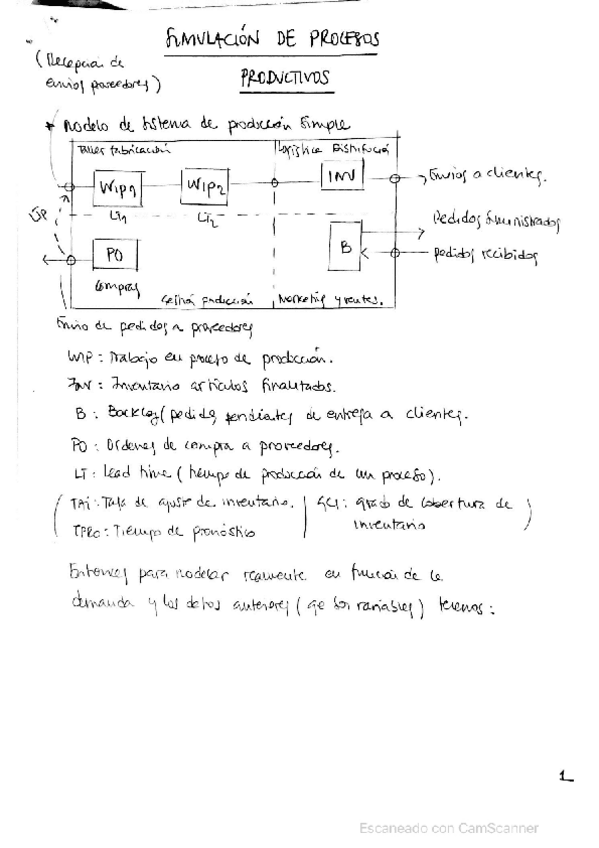 SIMULACIÓN DE PROCESOS
PRODUCTIVOS
(Recepción de
envios proveedores)
* Modelo de sistema de producción simple
Taller fabricación
Logística Distribución
WIP1
WIP2
INV
→ Envios a clientes.
LT1
LT2
Pedidos suministrados
B
pedidos recibidos
PO
Compras
Gestión producción
Marketing y ventas.
Envio de pedidos a proveedores
WIP : Trabajo en proceso de producción.
INV : Inventario artículos finalizados.
B : Backlog (pedidos pendientes de entrega a clientes.
PO : Ordenes de compra a proveedores.
LT : Lead time (tiempo de producción de un proceso).
TAI : Tasa de ajuste de inventario.
GCI : grado de cobertura de
inventario
TPRO : Tiempo de pronóstico
Entonces para modelar realmente en función de la
demanda y los datos anteriores (que son variables) tenemos :
1
Escaneado con CamScanner